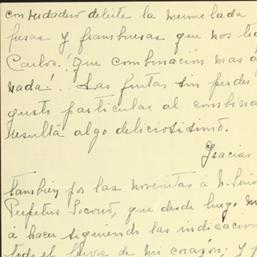 con verdadero deleite la mermelada
fresas y frambuesas que nos
Carlos! Que combinación mas
nada! Las frutas sin perder
gusto particular al combina
resulta algo deliciosísimo.
Gracias
también por las novenas a N. Seño
Perpetuo Socorro, que desde luego
a hacer siguiendo las indicacion
todo el fervor de mi corazón; y